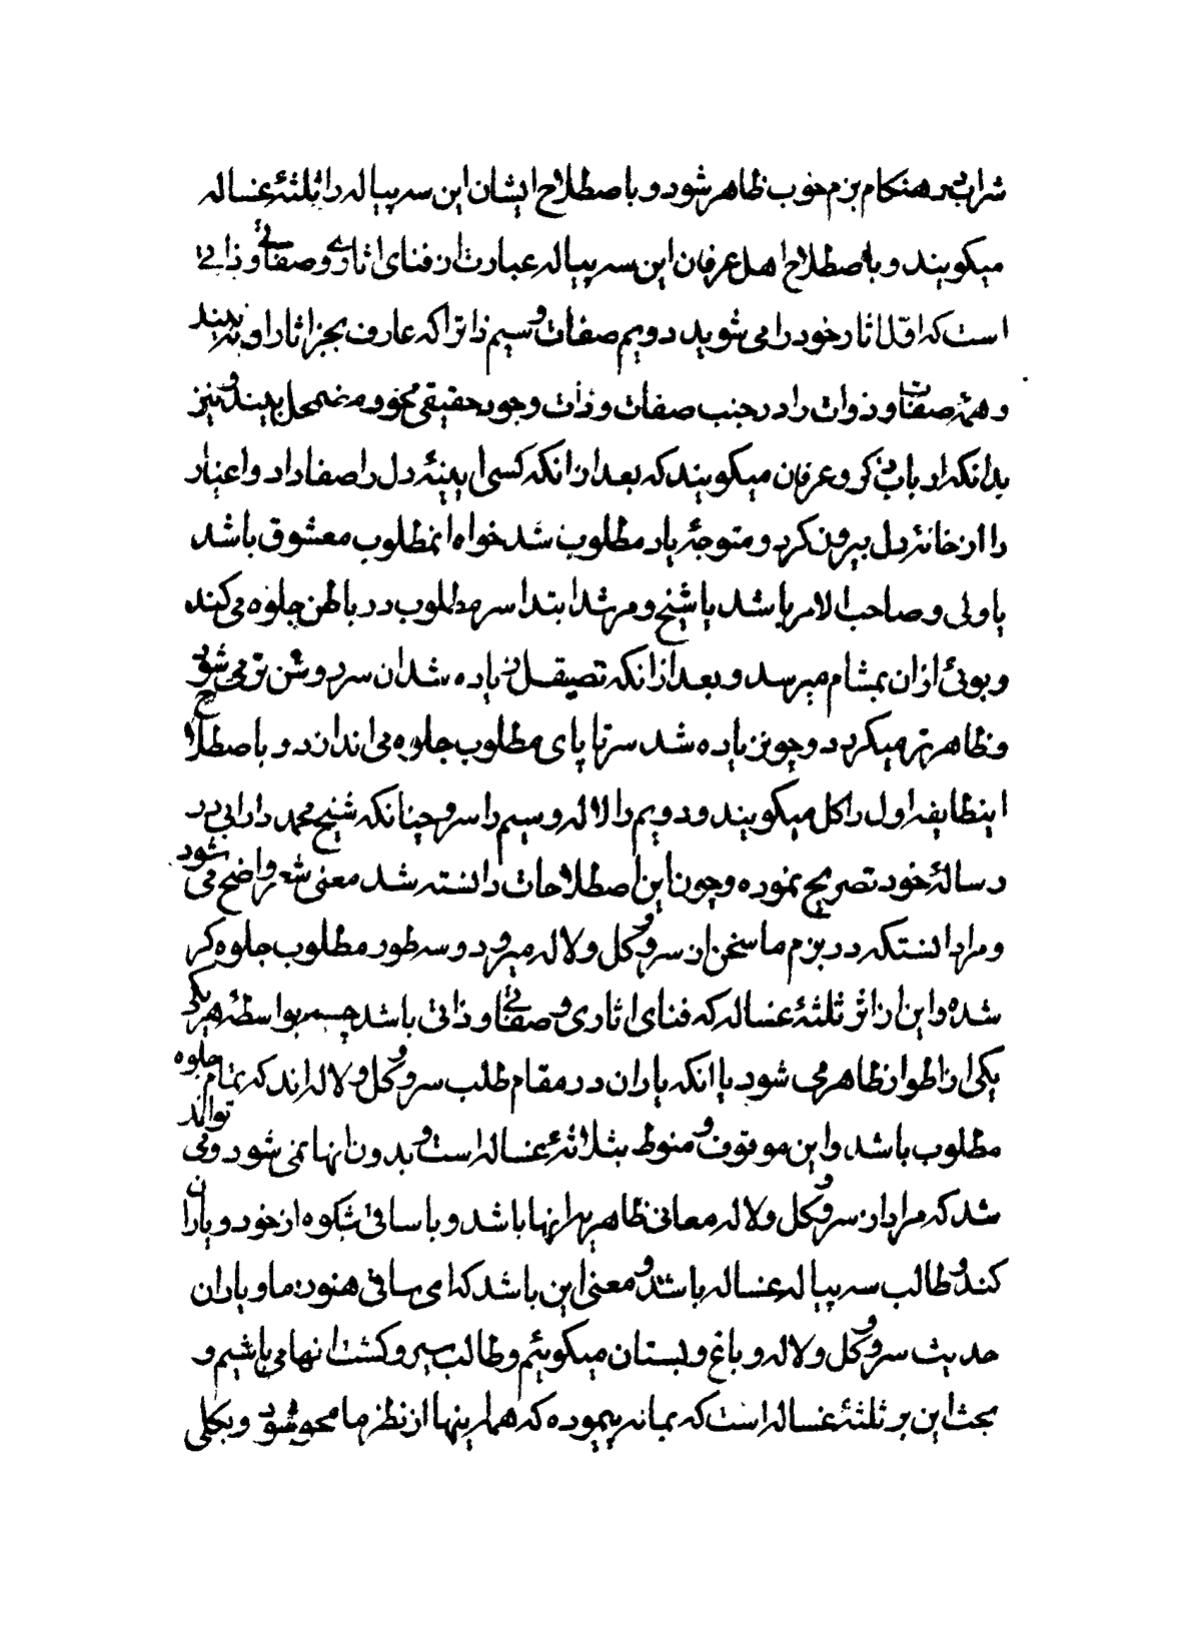 شرابی در هنکام بزم خوب ظاهر شود و باصطلاح ایشان این سه پیاله را ثلثهٔ غساله
میکویند و باصطلاح اهل عرفان این سه پیاله عبارت از فنای اثاری و صفاتی و ذاتی
است که اول اثار خود را می شوید دویم صفات و سیم ذاترا که عارف بجز اثار او نه بیند
و همهٔ صفات و ذوات را در جنب صفات و ذات وجود حقیقی محو و مضمحل بیند و نیز
بدانکه ارباب ذکر و عرفان میکویند که بعد از انکه کسی ایینهٔ دل را صفا داد و اغیار
را از خانهٔ دل بیرون کرد و متوجهٔ یاد مطلوب شد خواه انمطلوب معشوق باشد
یا ولی و صاحب الامر باشد یا شیخ و مرشد ابتدا سر مطلوب در باطن جلوه می کند
و بوئی از ان بمشام میرسد و بعد از انکه تصیقل زیاده شد ان سر روشن تر می شود
و ظاهر تر میکردد و چون زیاده شد سر تا پای مطلوب جلوه می اندازد و باصطلاح
اینطایفه اول را کل میکویند و دویم را لاله و سیم را سرو چنانکه شیخ محمد دارابی در
رسالهٔ خود تصریح نموده و چون این اصطلاحات دانسته شد معنی شعر واضح می شود
و مراد انستکه در بزم ما سخن از سرو و کل و لاله میرود و سه طور مطلوب جلوه کر
شده و این از اثر ثلثهٔ غساله که فنای اثاری و صفاتی و ذاتی باشد چه بواسطهٔ هر یکی
یکی از اطوار ظاهر می شود یا انکه یاران در مقام طلب سرو و کل و لاله اند که تمام جلوه
مطلوب باشد و این موقوف و منوط بثلاثهٔ غساله است و بدون انها نمی شود و می تواند
شد که مراد از سرو و کل و لاله معانی ظاهر یه اینها باشد و با ساقی شکوه از خود و یاران
کند و طالب سه پیاله غساله باشد و معنی این باشد که ای ساقی هنوز ما و یاران
حدیث سرو و کل و لاله و باغ و بستان میکوئیم و طالب سیر و کشت انها می باشیم و
بحث این بر ثلثهٔ غساله است که بما نه پیموده که همه اینها از نظر ما محو شود و بکلی